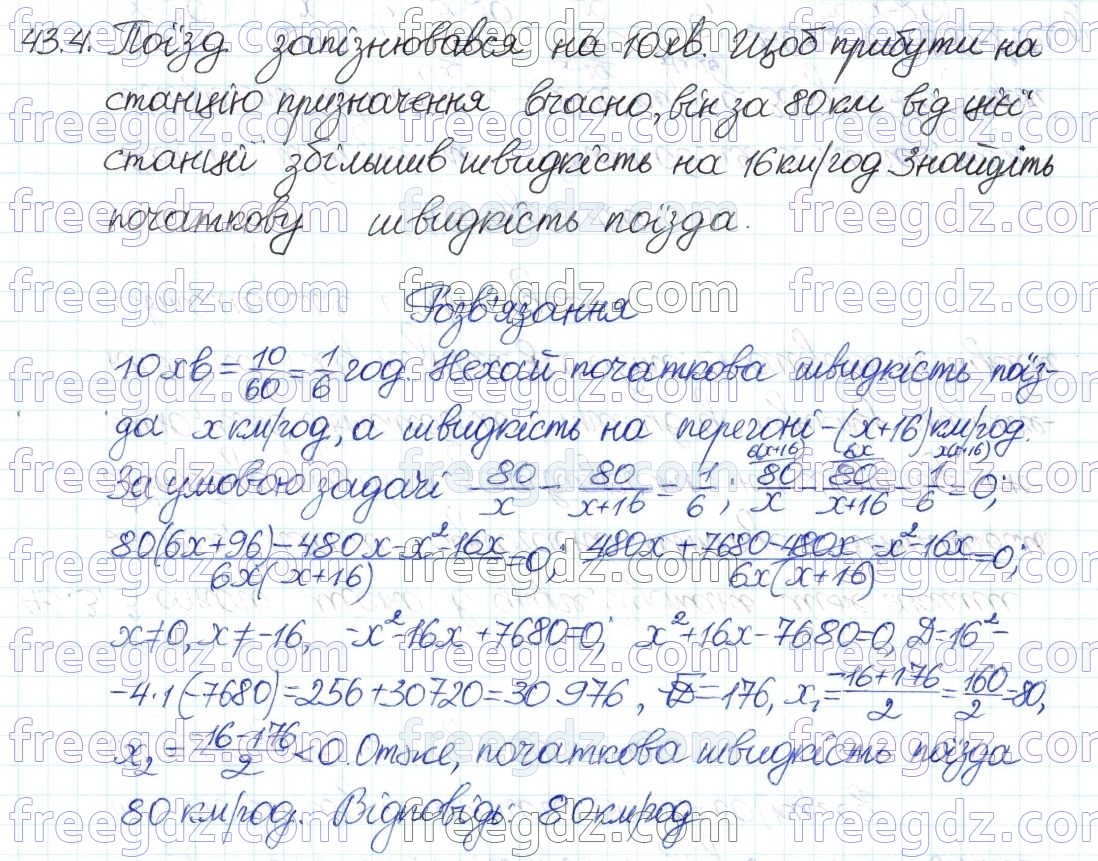 43.4. Поїзд запізнювався на 10 хв. Щоб прибути на
станцію призначення вчасно, він за 80 км від цієї
станції збільшив швидкість на 16 км/год. Знайдіть
початкову швидкість поїзда.
Розв'язання
10 хв = 10/60 = 1/6 год. Нехай початкова швидкість поїз-
да x км/год, а швидкість на перегоні - (x+16) км/год.
За умовою задачі 80/x - 80/(x+16) = 1/6; 6(x+16) 80/x - 6x 80/(x+16) - x(x+16) 1/6 = 0;
(80(6x+96)-480x-x²-16x)/(6x(x+16)) = 0; (480x+7680-480x-x²-16x)/(6x(x+16)) = 0;
x≠0, x≠-16, -x²-16x+7680=0; x²+16x-7680=0, D=16²-
-4·1(-7680)=256+30720=30 976, √D=176, x₁=(-16+176)/2=160/2=80,
x₂=(-16-176)/2<0. Отже, початкова швидкість поїзда
80 км/год. Відповідь: 80 км/год
freegdz.com